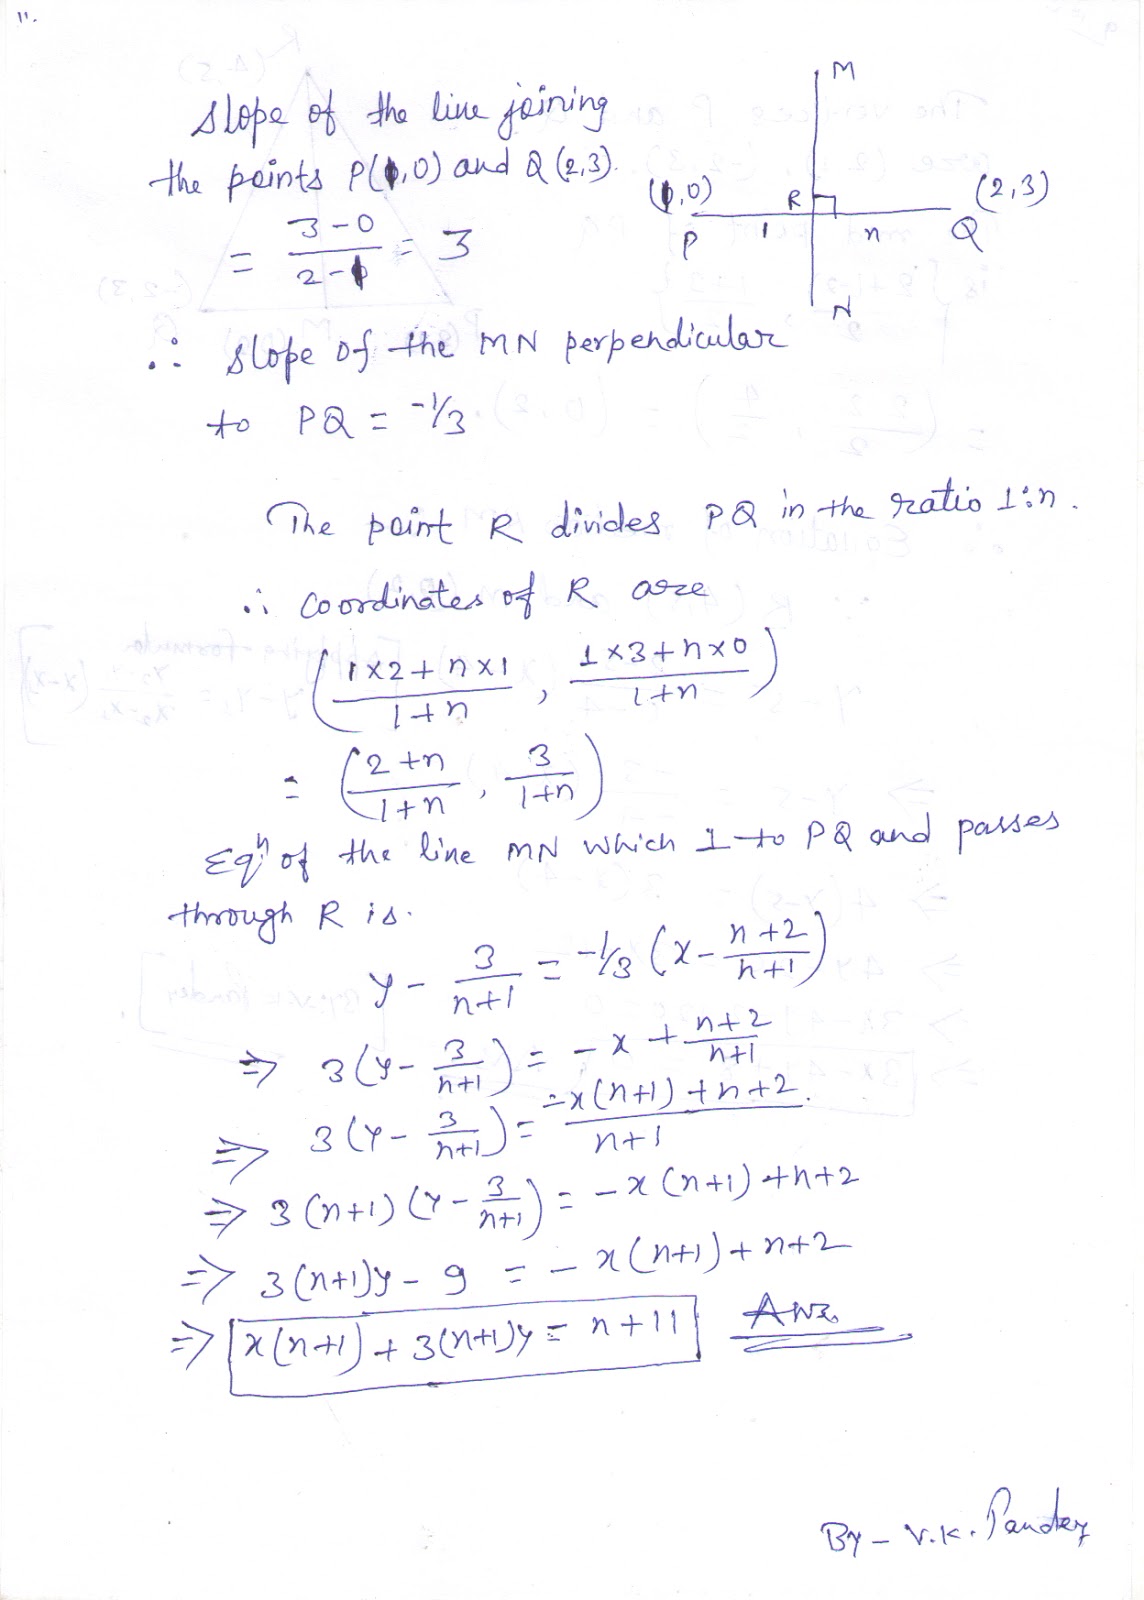 11.
M
slope of the line joining
the points P(1,0) and Q(2,3).
(1,0) R (2,3)
P 1 n Q
= 3-0 / 2-1 = 3
N
∴ slope of the MN perpendicular
to PQ = -1/3
The point R divides PQ in the ratio 1:n.
∴ coordinates of R are
( 1×2+n×1 / 1+n , 1×3+n×0 / 1+n )
= ( 2+n / 1+n , 3 / 1+n )
Eqⁿ of the line MN which ⊥ to PQ and passes
through R is.
y - 3/n+1 = -1/3 (x - n+2/n+1)
⇒ 3(y - 3/n+1) = -x + n+2/n+1
⇒ 3(y - 3/n+1) = -x(n+1)+n+2. / n+1
⇒ 3(n+1)(y - 3/n+1) = -x(n+1)+n+2
⇒ 3(n+1)y - 9 = -x(n+1)+n+2
⇒ x(n+1)+3(n+1)y = n+11 Ans
By - V.K. Pandey